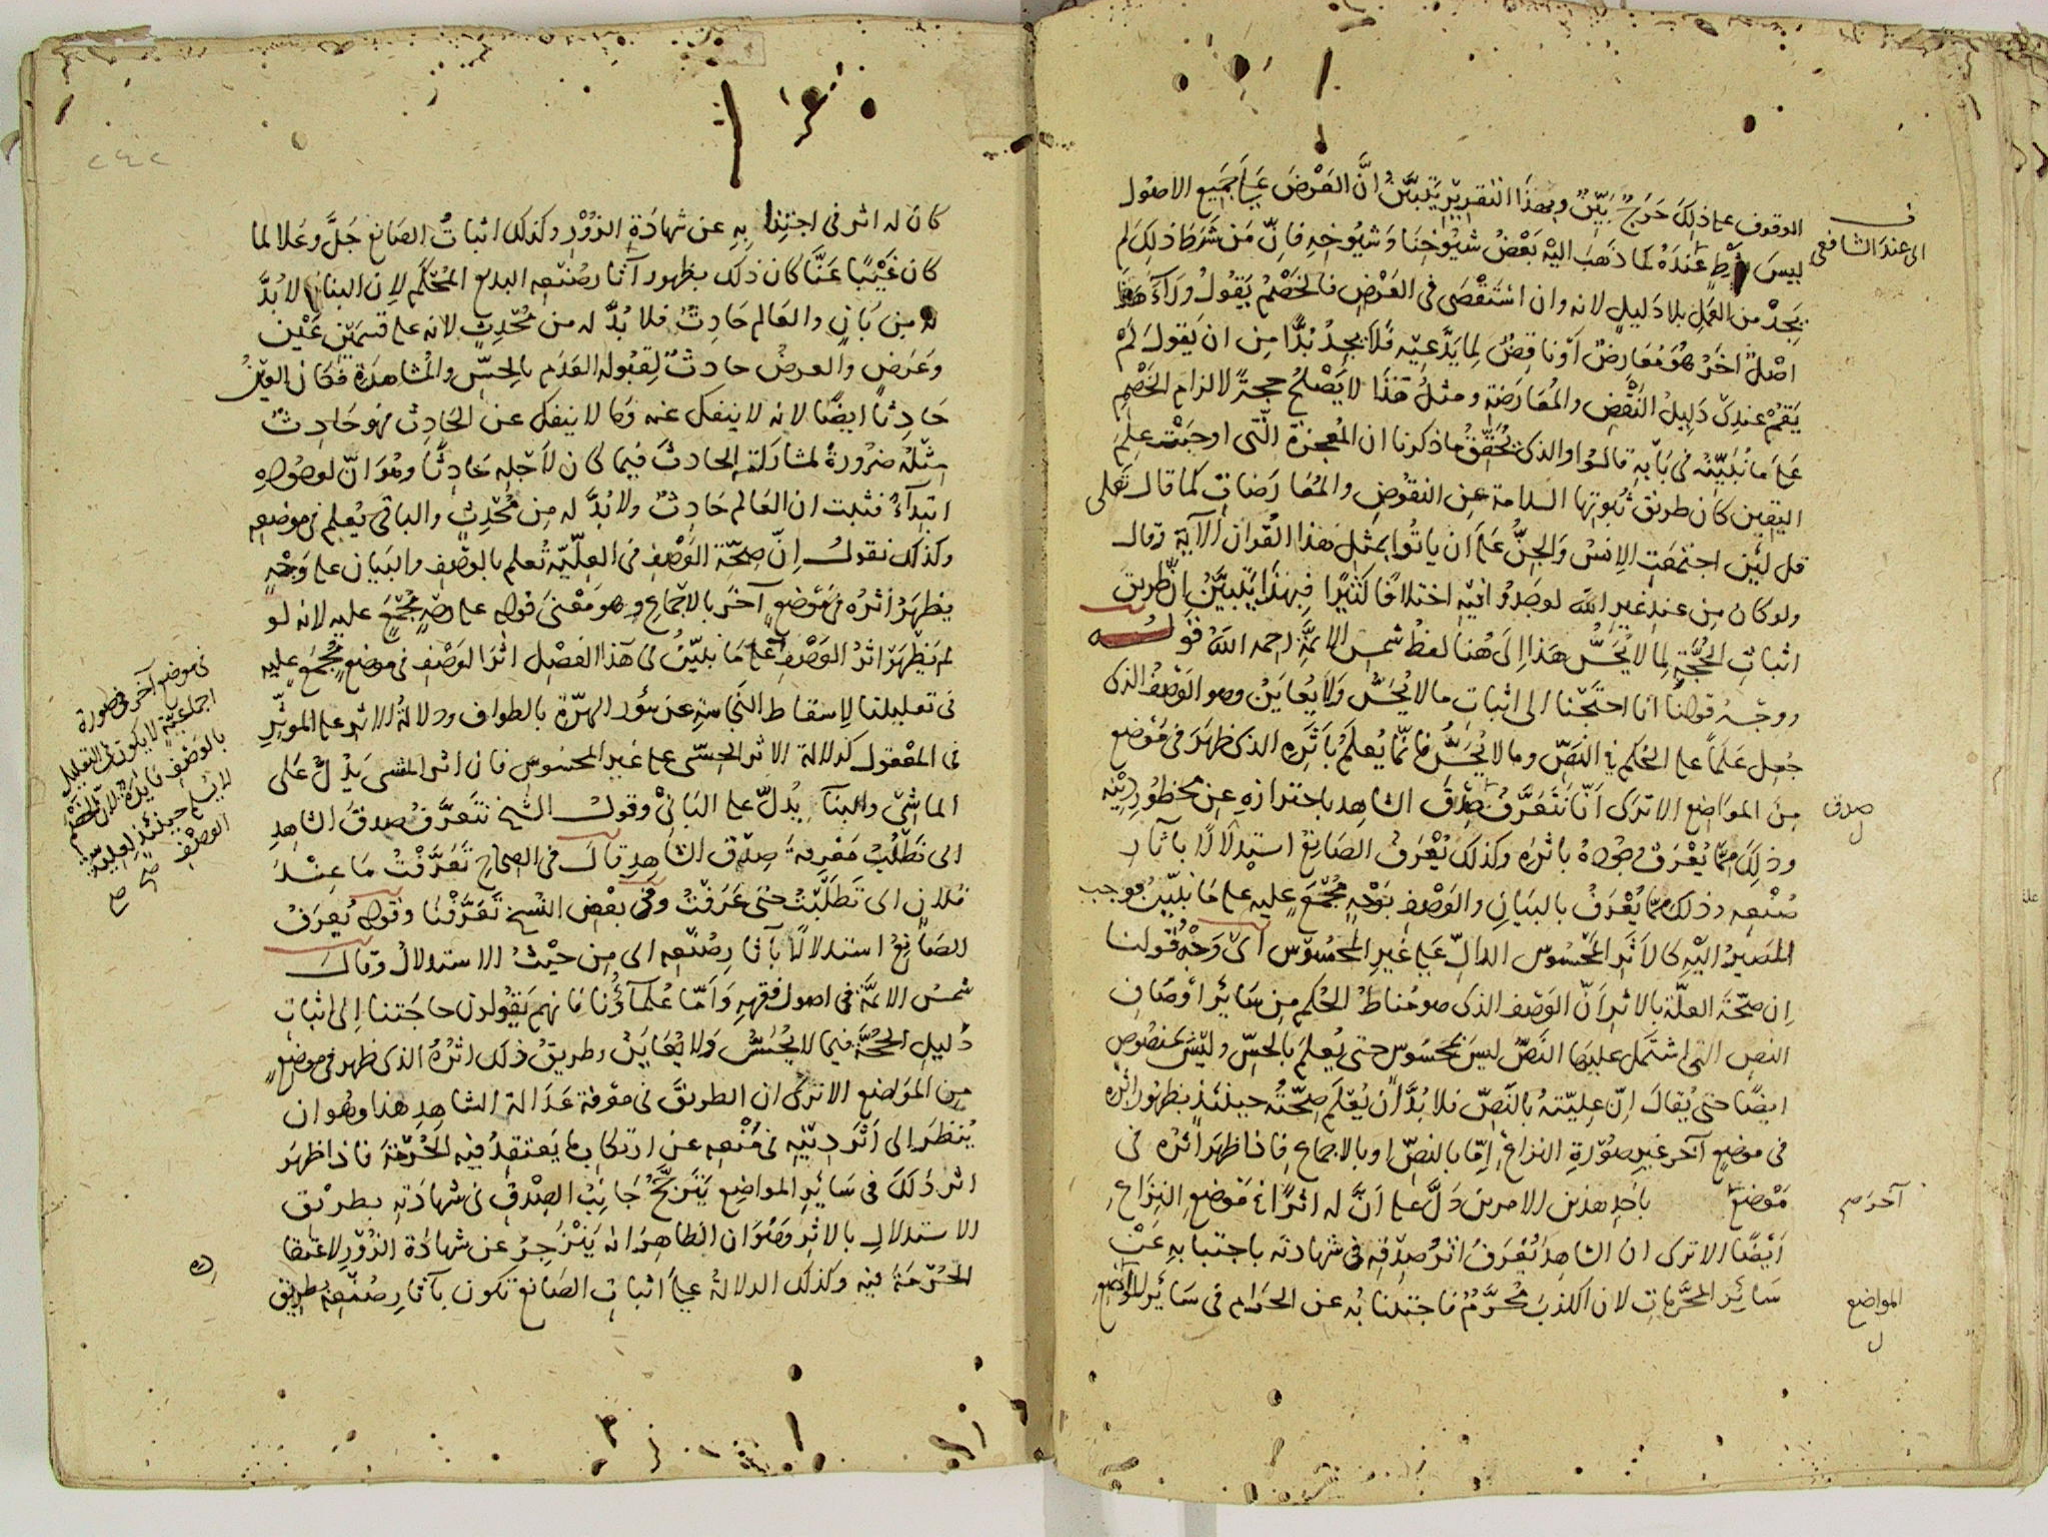 الوقوف على ذلك حرج بيّن وبهذا التقرير يتبيّن انّ العرض على جميع الاصول
ليس بشرط عنده كما ذهب اليه بعض شيوخنا وشيوخه فانّ من شرط ذلك لم
اى عند الشافعى
يجد من العمل بلا دليل لانه وان استقصى فى العرض فالخصم يقول وراء هذا
اصل آخر هو معارض او ناقض لما يدّعيه فلا يجد بُدّا من ان يقول لم
يقم عندى دليل النقض والمعارضة ومثل هذا لا يصلح حجة لالزام الخصم
على ما نبيّنه فى بابه قالوا والذى يحقّق ما ذكرنا ان المعجزة الّتى اوجبت علم
اليقين كان طريق ثبوتها السلامة عن النقوض والمعارضات كما قال تعلى
قل لئن اجتمعت الانس والجنّ على ان ياتوا بمثل هذا القرآن الآية وقال
ولو كان من عند غير الله لوجدوا فيه اختلافا كثيرا فبهذا يتبيّن انّ طريق
اثبات الحجّة لما لا يحسّ هذا الى هنا لفظ شمس الائمّة رحمه الله قوله
ووجه قولنا انا احتجنا الى اثبات ما لا يحسّ ولا يعاين وهو الوصف الذى
جعل علما على الحكم فى النصّ وما لا يحسّ فانّما يعلم باثره الذى ظهر فى موضع
من المواضع الا ترى انّا نتعرّف صدق الشاهد باحترازه عن محظور دينه
صدق
ل
وذلك ممّا يعرف وجوده باثره وكذلك يعرف الصانع استدلالا بآثار
صنعه وذلك ممّا يعرف بالبيان والوصف بوجه مجمع عليه على ما نبيّن فوجب
المصير اليه كالاثر المحسوس الدالّ على غير المحسوس اى وجه قولنا
ان صحّة العلّة بالاثر انّ الوصف الذى هو مناط الحكم من سائر اوصاف
النص التى اشتمل عليها النصّ ليس بمحسوس حتى يعلم بالحسّ وليس بمنصوص
ايضا حتى يقال انّ علّيّته بالنصّ فلا بدّ ان يعلم صحّته حينئذ بظهور اثره
فى موضع آخر غير صورة النزاع امّا بالنصّ او بالاجماع فاذا ظهر اثره فى
موضع باحد هذين الامرين دلّ على انّ له اثرا فى موضع النزاع
آخر صح
ايضا الا ترى ان الشاهد يعرف اثر صدقه فى شهادته باجتنابه عن
سائر المحرّمات لان الكذب محرّم فاجتنابه عن الحرام فى سائر المواضع
المواضع
ل
كان له اثر فى اجتنابه عن شهادة الزور وكذلك اثبات الصانع جلّ وعلا لما
كان غيبا عنّا كان ذلك بظهور آثار صنعه البديع المحكم لان البناء لا بدّ
له من بان والعالم حادث فلا بدّ له من محدث لانه على قسمين عين
وعرض والعرض حادث لقبوله العدم بالحسّ والمشاهدة فكان العين
حادثا ايضا لانه لا ينفك عنه وما لا ينفك عن الحادث فهو حادث
مثله ضرورة لمشاركة الحادث فيما كان لاجله حادثا وهو انّ لوجوده
ابتداء فثبت ان العالم حادث ولا بدّ له من محدث والباقى يعلم فى موضعه
وكذلك نقول انّ صحّة الوصف فى العلّيّة تعلم بالوصف والبيان على وجه
يظهر اثره فى موضع آخر بالاجماع وهو معنى قوله على وجه مجمع عليه لانه لو
لم يظهر اثر الوصف على ما نبيّن فى هذا الفصل اثر الوصف فى موضع مجمع عليه
فى موضع آخر فى صورة
اجماعيّة لا يكون فى التعليل
بالوصف فايدة لانّ الخصم
لا يسلّم حينئذ لعلّيّة
الوصف صح صح
فى تعليلنا لاسقاط النجاسة عن سؤر الهرّة بالطواف ودلالة الاثر على المؤثر
فى المعقول كدلالة الاثر الحسّى على غير المحسوس فان اثر المشى يدلّ على
الماشى والبناء يدلّ على البانى وقول الشيخ نتعرّف صدق الشاهد
اى نطلب معرفة صدق الشاهد قال فى الصحاح تعرّفت ما عند
فلان اى تطلّبت حتى عرفت وفى بعض النسخ تعرّفنا وقوله يعرف
الصانع استدلالا بآثار صنعه اى من حيث الاستدلال وقال
شمس الائمّة فى اصول فقهه وامّا علماؤنا فانهم يقولون حاجتنا الى اثبات
دليل الحجّة فيما لا يحسّ ولا يعاين وطريق ذلك اثره الذى ظهر فى موضع
من المواضع الا ترى ان الطريق فى معرفة عدالة الشاهد هذا وهو ان
ينظر الى اثر دينه فى منعه عن ارتكاب ما يعتقد فيه الحرمة فاذا ظهر
اثر ذلك فى سائر المواضع يترجّح جانب الصدق فى شهادته بطريق
الاستدلال بالاثر وهو ان الظاهر انه ينزجر عن شهادة الزور لاعتقا
ده
الحرمة فيه وكذلك الدلالة على اثبات الصانع تكون بآثار صنعه بطريق
٢٤٢